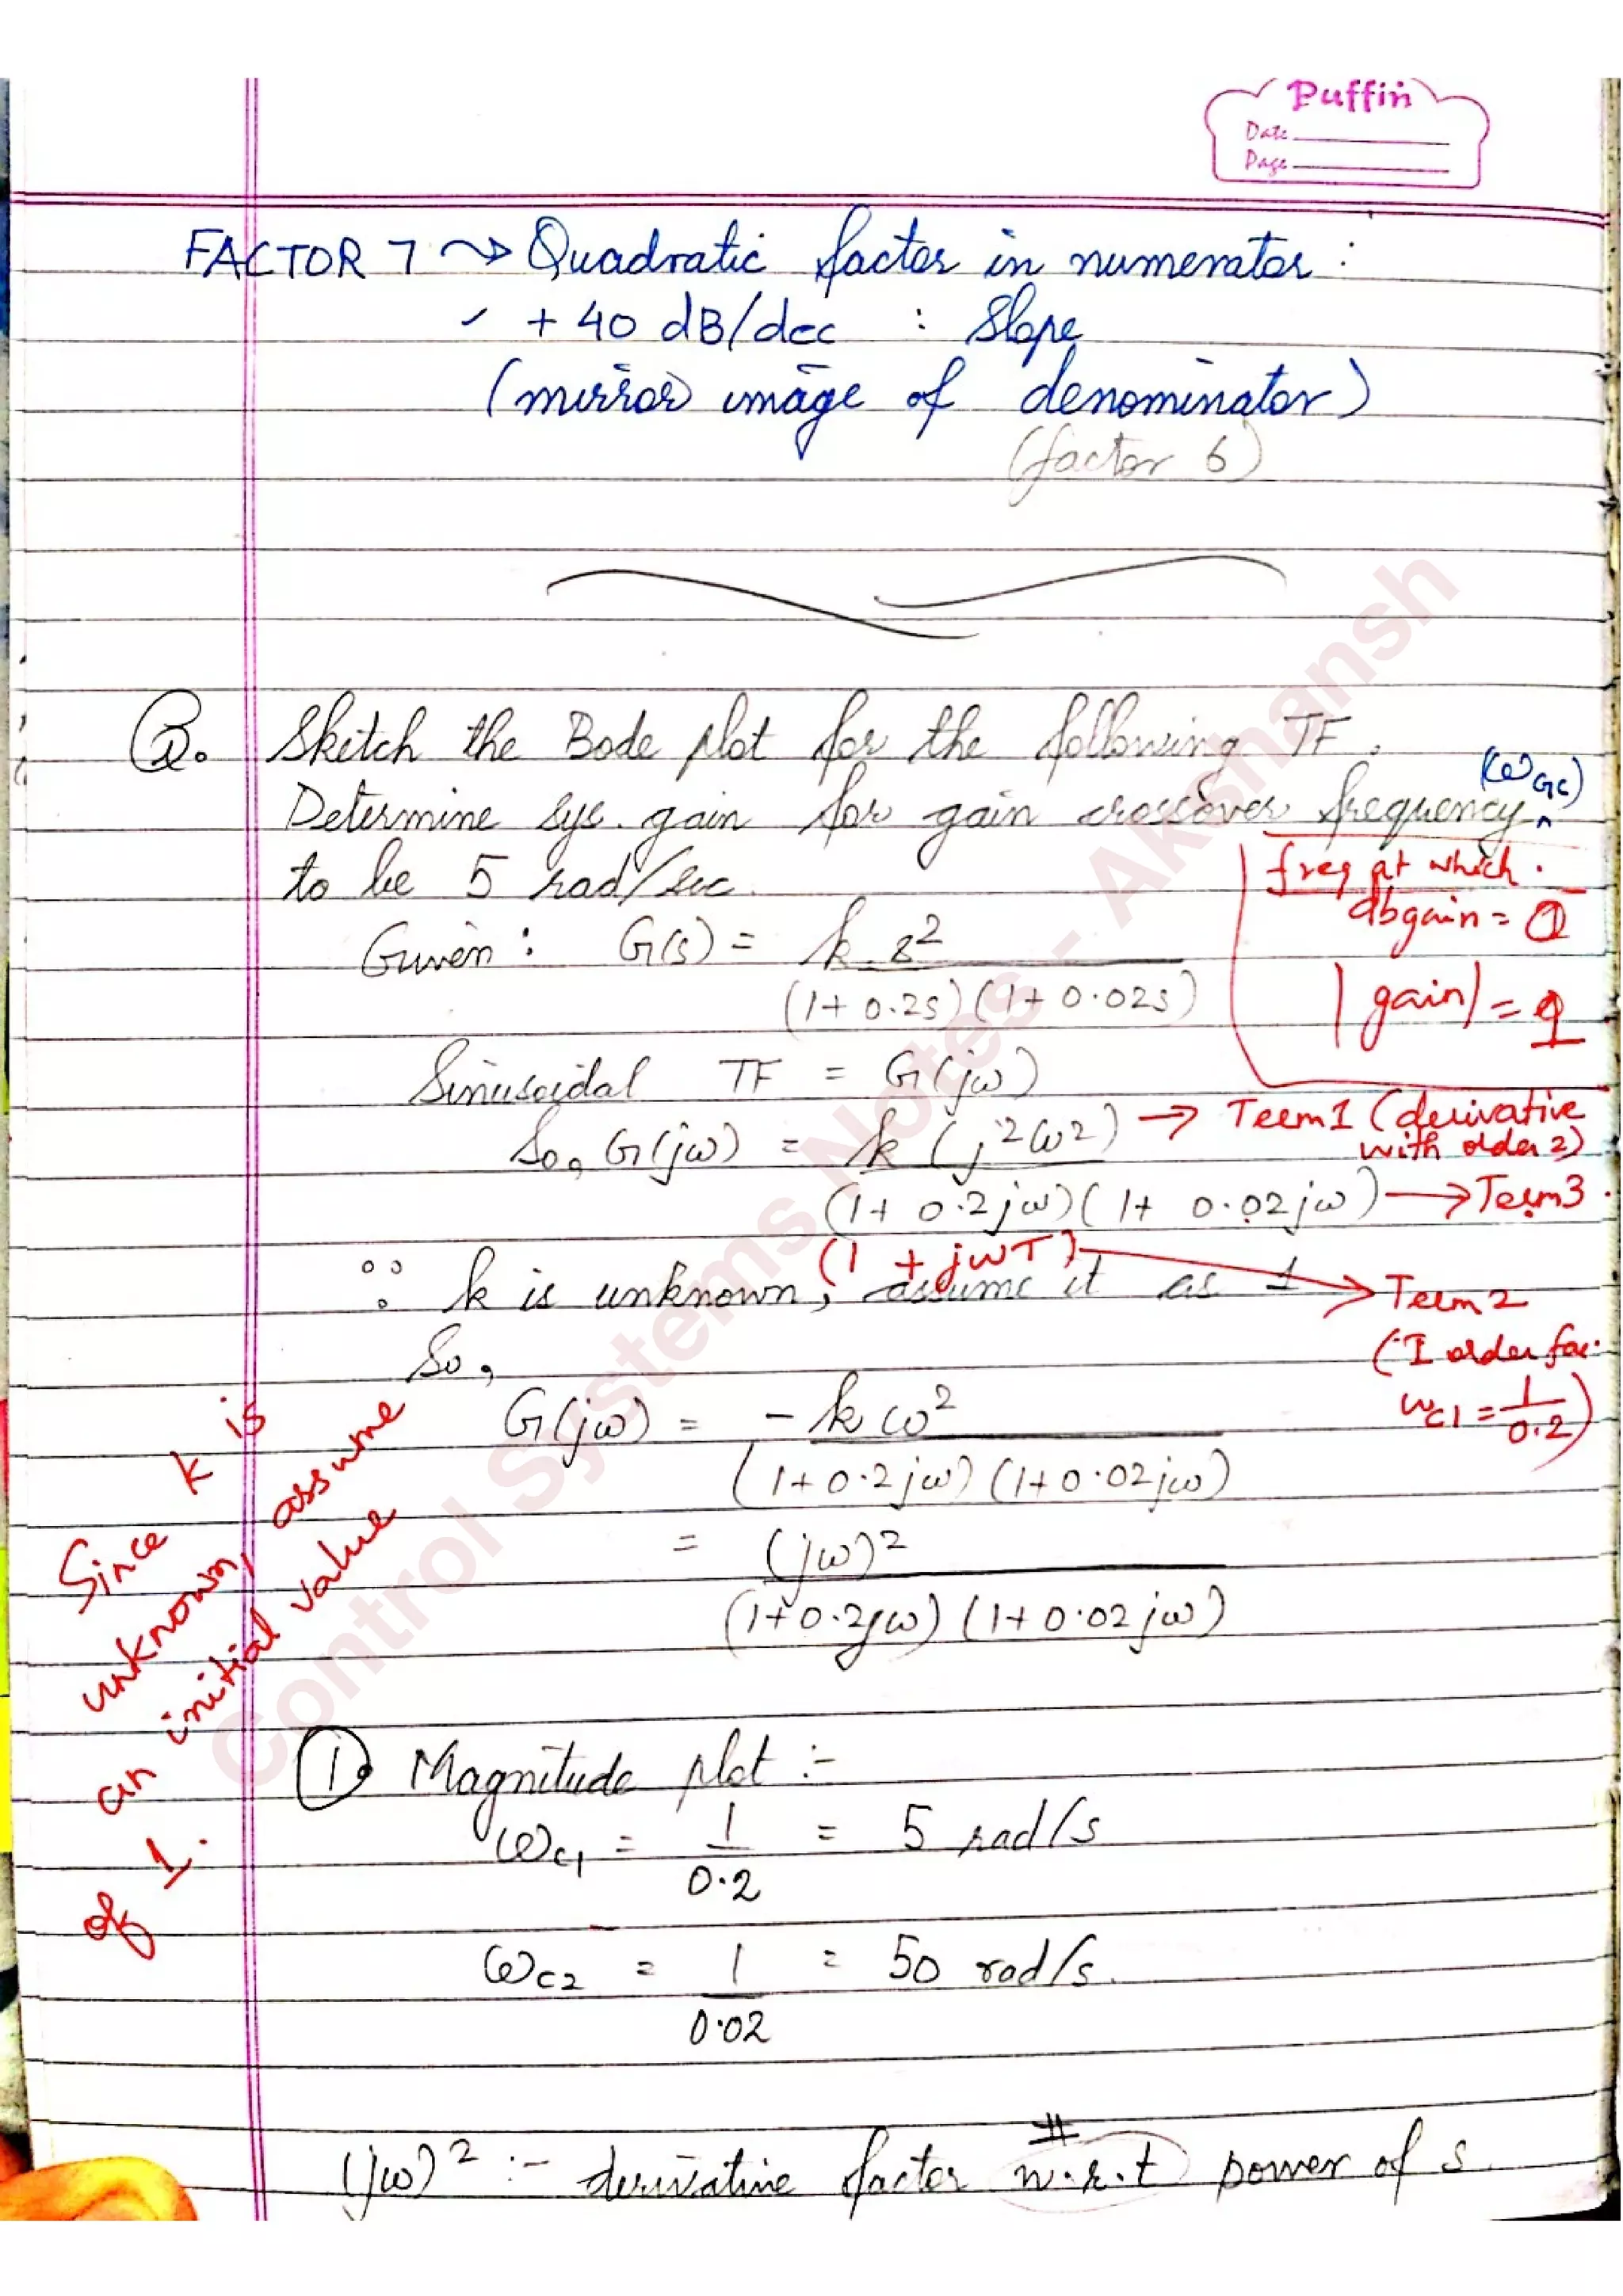 Puffin
Date
Page
FACTOR 7 ⤳ Quadratic factor in numerator :
✓ + 40 dB/dec : Slope
(mirror image of denominator)
(factor 6)
Q. Sketch the Bode plot for the following TF.
Determine sys. gain for gain crossover frequency (ωGC)
to be 5 rad/sec.
freq at which
db gain = 0
|gain| = 1
Given : G(s) = k s²
(1+ 0.2s) (1+ 0.02s)
Sinusoidal TF = G(jω)
So, G(jω) = k (j²ω²) → Term 1 (derivative
with order 2)
(1+ 0.2jω)(1+ 0.02jω) → Term 3
(1 + jωT)
∵ k is unknown, assume it as 1
→ Term 2
(I order fac.
ωc1 = 1/0.2)
So,
G(jω) = - kω²
(1+0.2jω) (1+0.02jω)
= (jω)²
(1+0.2jω) (1+0.02jω)
Since k is
unknown, assume
an initial value
of 1.
① Magnitude plot :-
ωc1 = 1/0.2 = 5 rad/s
ωc2 = 1/0.02 = 50 rad/s.
(jω)² :- derivative factor w.r.t power of s.
Control Systems Notes - Akshansh